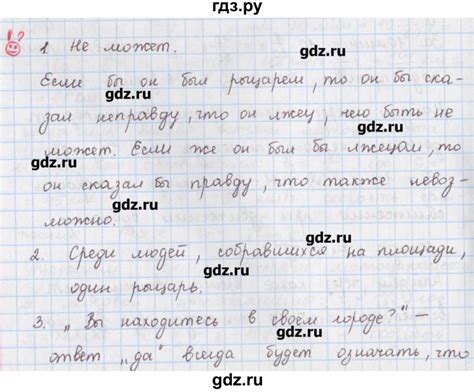 гдз.ру
!?
1. Не может.
gdz.ru
Если бы он был рыцарем, то он бы ска-
gdz.ru
зал неправду, что он лжец, чего быть не
gdz.ru
может. Если же он был бы лжецом, то
gdz.ru
он сказал бы правду, что также невоз-
gdz.ru
можно.
2. Среди людей, собравшихся на площади,
gdz.ru
один рыцарь.
gdz.ru
3. „Вы находитесь в своём городе?" –
gdz.ru
ответ „да" всегда будет означать, что
gdz.ru